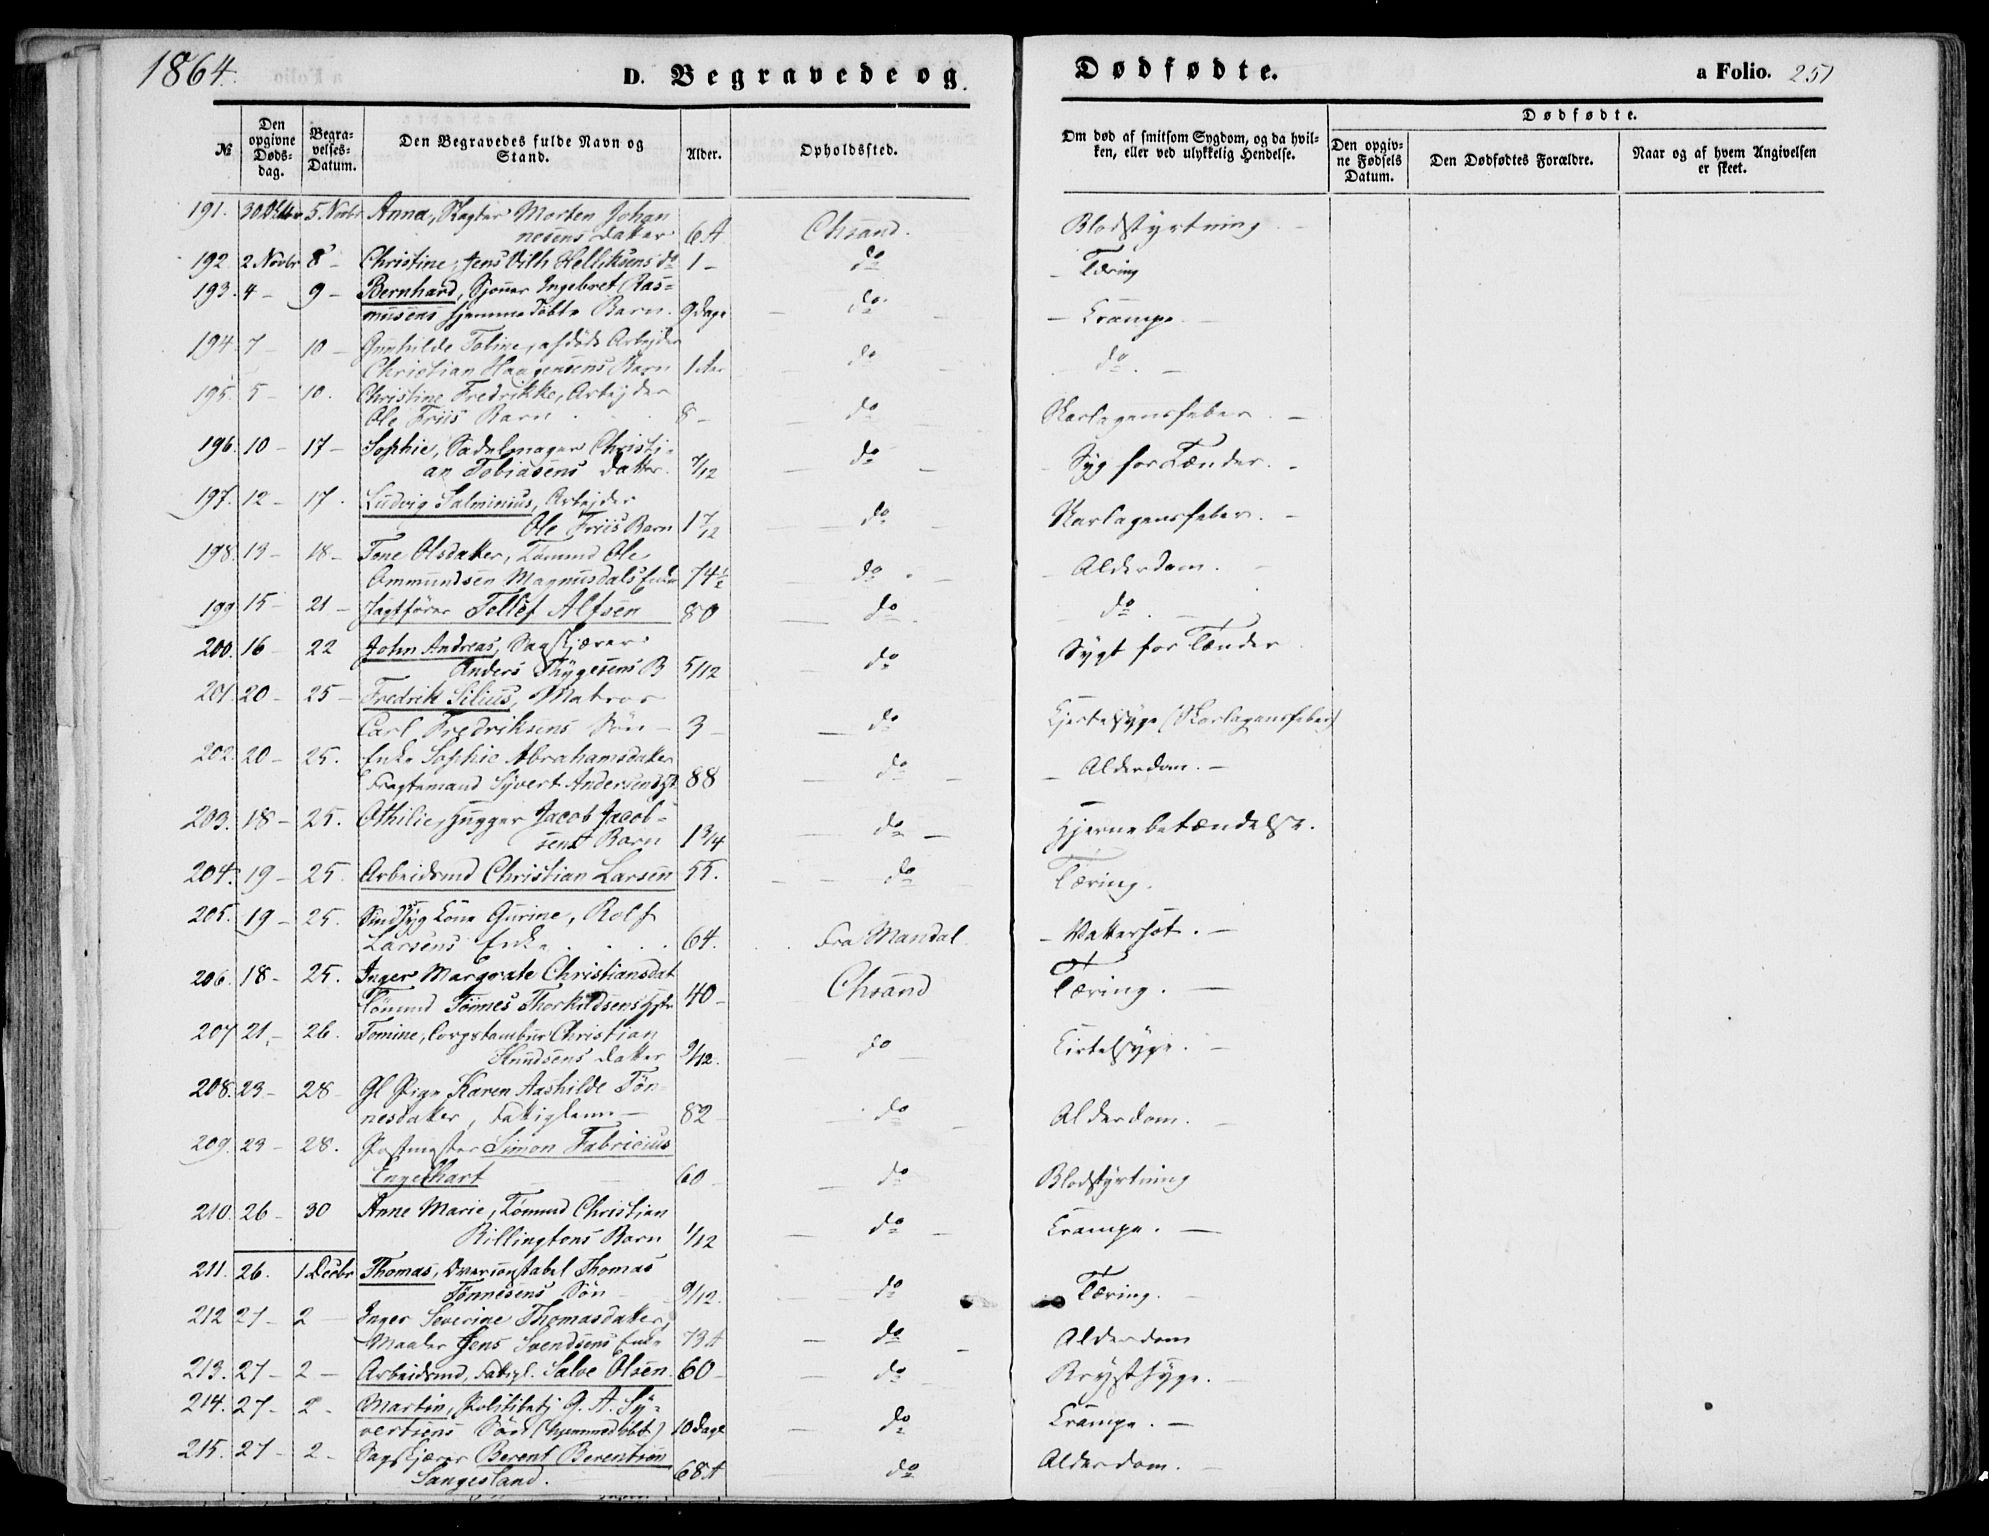 1864.
D. Begravede og
Dødfødte.
a Folio. 251
№
Den opgivne Døds-dag.
Begra-velses-Datum.
Den Begravedes fulde Navn og Stand.
Alder.
Opholdssted.
Om død af smitsom Sygdom, og da hvil-ken, eller ved ulykkelig Hendelse.
Dødfødte.
Den opgiv-ne Fødsels Datum.
Den Dødfødtes Forældre.
Naar og af hvem Angivelsen er skeet.
191. 30 Oktbr 5. Novbr Anna, Slagter Morten Johan
nesens Datter 6 A Chsand. Blodstyrtning
192. 2. Novbr 8 - Christine, Jens Vilh Helliksens do 1 - do - Tæring
193. 4 - 9 - Bernhard, Skouer Ingebret Ras=
musens hjemmedøbte Barn. 9 Dage - do - Krampe. -
194. 7 - 10 - Gunhilde Toline, afdøde Arbejder
Christian Haagensens Barn 1 Aar - do do. -
195. 5 - 10. Christine Fredrikke, Arbejder
Ole Friis Barn 8 - do Skarlagensfeber. -
196. 10 - 17 - Sophie, Sadelmager Christi-
an Tobiasens Datter. 7/12 - do - Syg for Tænder. -
197. 12 - 17. Ludvig Salminius, Arbejder
Ole Friis Barn 1 7/12 - do - Skarlagensfeber. -
198. 13 - 18 - Tone Olsdatter, Tømmd Ole
Ommundsen Magnusdals Enke 74½ - do. - - Alderdom. -
199 15 - 21 - Jagtfører Tellef Alfsen 80 - do - - do. -
200. 16 - 22 John Andreas, Sagskjærer
Anders Thygesens B 5/12 do Sygt for Tænder
201. 20 - 25 - Fredrik Silius, Matros
Carl Fredriksens Søn - 3 - - do Kjertelsyge (Skarlagensfeber)
202. 20 - 25. Enke Sophie Abrahamsdatter
Fragtemand Syvert Andersens 88 - do - - Alderdom. -
203. 18 - 25. Othilie, Hugger Jacob Jacob-
sens Barn 1 3/4 - do - Hjernebetændelse.
204. 19 - 25. Arbeidsmd Christian Larsen 55. - do - Tæring.
205. 19 - 25. Sindssyg Kone Gurine, Rolf
Larsens Enke . . . . 64. . . Fra Mandal. - Vattersot. -
206. 18 - 25. Inger Margrate Christiansdat
Tømmd Tönnes Thorkildsens Hstr 40 - Chsand Tæring. -
207 21 - 26. Tomine, Corpstambur Christian
Knudsens Datter 9/12. - do - Kirtelsyge. -
208. 23 - 28 - Gl Pige Karen Aashilde Tøn-
nesdatter, Fattiglem - 82 - . do - Alderdom. -
209. 23 - 28. Postmester Simon Fabricius
Engelhart 60 - - do Blodstyrtning
210. 26 - 30 Anne Marie, Tømmd Christian
Billingtons Barn 1/12 - do - Krampe. -
211. 26. 1 Decbr Thomas, Overconstabel Thomas
Tönnesens Søn - 9/12. - do - Tæring. -
212 27 - 2 - Inger Severine Thomasdatter,
Maaler Jens Svendsens Enke 73 A - do - Alderdom
213. 27 - 2 - Arbeidsmd, Fattigl. Salve Olsen. 60 - - do - Brystsyge. -
214. 27 - 2 - Martin, Politibetj G. A. Sy=
vertsens Søn (hjemmedøbt) 10 Dage - do Krampe. -
215. 27 - 2 - Sagskjærer Berent Berentsen
Sangesland. 68 A - do Alderdom. -